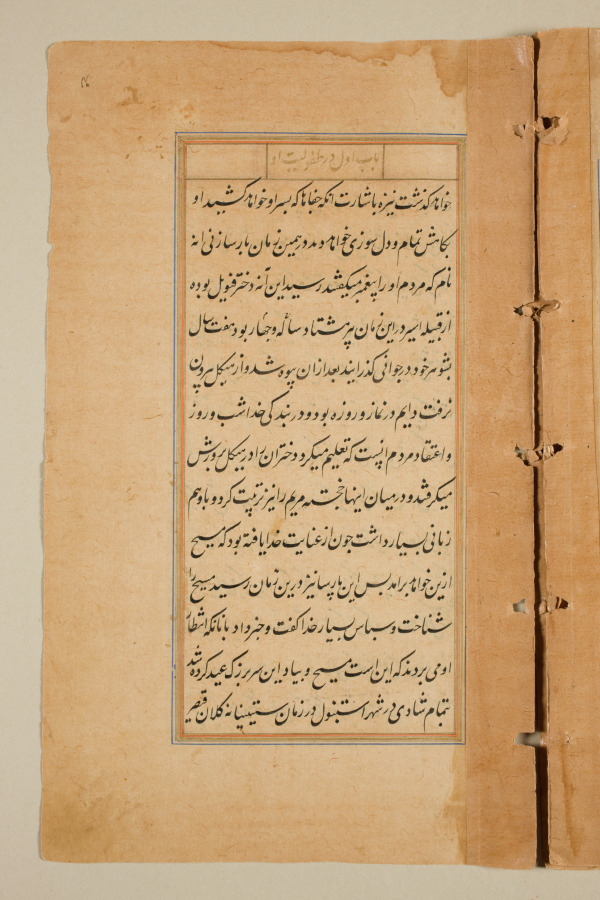 باب اول در طفولیت او
خواهد گذشت نیزه باشارت انکه جفاها که بسر او خواهد کشید او
بکاهش تمام و دل سوزی خواهد دید در همین زمان پارسا زنی انه
نام که مردم او را پیغمبر میگفتند رسید این آنه دختر فنویل بوده
از قبیله اسیر در این زمان هشتاد ساله و چهار بود هفت سال
بشوهر خود در جوانی گذرانید بعد از ان بیوه شد و از هیکل بیرون
نرفت دایم در نماز و روزه بود و در بندگی خدا شب و روز
و اعتقاد مردم اینست که تعلیم میکرد دختران را در هیکل پرورش
میگرفتند و در میان اینها خجسته مریم را نیز تربیت کرد و با و هم
زبانی بسیار داشت چون از عنایت خدا یافته بود که مسیح
ازین خواهد برامد پس این پارسا نیز درین زمان رسید مسیح را
شناخت و سپاس بسیار خدا گفت و خبر داد بانانکه انتظار
او می بردند که این است مسیح و بیاد این سر بزرگ عید کرده شد
تمام شادی در شهر استنبول در زمان ستینیانه کلان قیصر